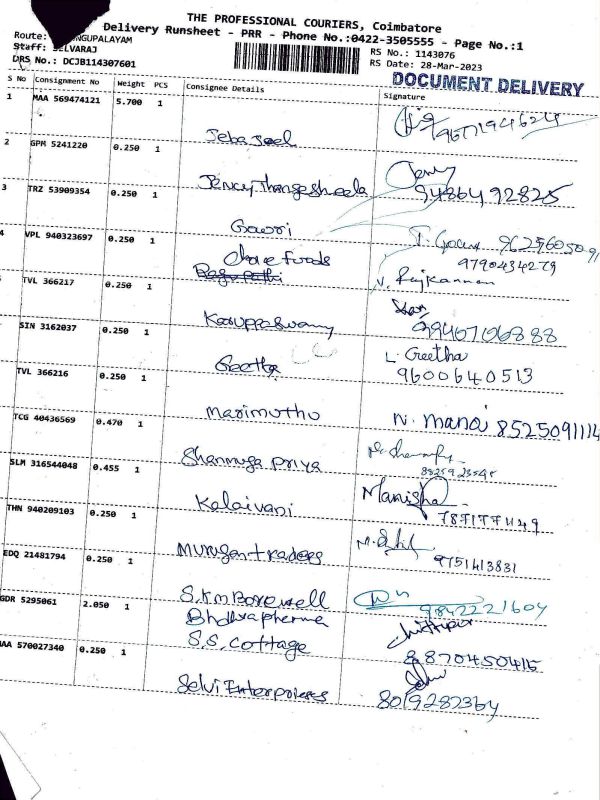 THE PROFESSIONAL COURIERS, Coimbatore
Delivery Runsheet - PRR - Phone No.:0422-3505555 - Page No.:1
Route: NGUPALAYAM
Staff: SELVARAJ
DRS No.: DCJB114307601
RS No.: 1143076
RS Date: 28-Mar-2023
DOCUMENT DELIVERY
S No Consignment No Weight PCS Consignee Details Signature
1 MAA 569474121 5.700 1 Jeba Joel
2 GPM 5241220 0.250 1 Jency Thangesheela Jency 9486492825
3 TRZ 53909354 0.250 1 Gowri 9629605091
4 VPL 940323697 0.250 1 Chare foods 9790434279
V. Rajkannan
TVL 366217 0.250 1 Karuppaswamy 9946706888
SIN 3162037 0.250 1 Geetha L. Geetha
9600640513
TVL 366216 0.250 1 Marimuthu N. Manoj 8525091114
TCG 40436569 0.470 1 Shanmuga priya
SLM 316544048 0.455 1 Kalaivani Manisha
THN 940209103 0.250 1 Murugan traders 9751413831
EDQ 21481794 0.250 1 S.K.m Borewell 9842221604
Bhdhrapherma
GDR 5295061 2.050 1 S.S. Cottage 8870450415
AA 570027340 0.250 1 Selvi Enterprises 8019282364